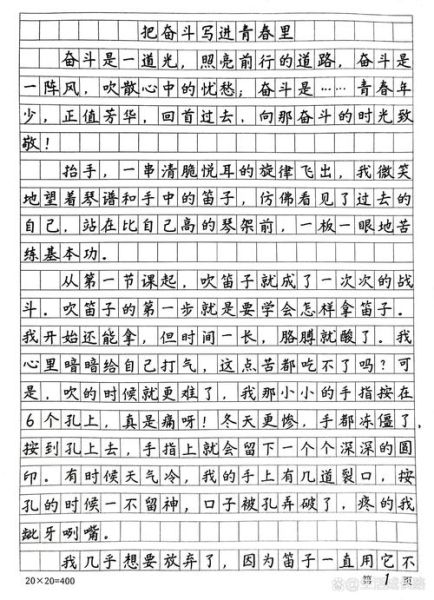 把奋斗写进青春里
奋斗是一道光，照亮前行的道路，奋斗是
一阵风，吹散心中的忧愁；奋斗是……青春年
少，正值芳华，回首过去，向那奋斗的时光致
敬！
抬手，一串清脆悦耳的旋律飞出，我微笑
地望着琴谱和手中的笛子，仿佛看见了过去的
自己，站在比自己高的琴架前，一板一眼地苦
练基本功。
从第一节课起，吹笛子就成了一次次的战
斗。吹笛子的第一步就是要学会怎样拿笛子。
我开始还能拿，但时间一长，胳膊就酸了。我
心里暗暗给自己打气，这点苦都吃不了吗？可
是，吹的时候就更难了，我那小小的手指按在
6个孔上，真是痛呀！冬天更惨，手都冻僵了，
按到孔上去，手指上就会留下一个个深深的圆
印。有时候天气冷，我的手上有几道裂口，按
孔的时候一不留神，口子被孔弄破了，疼的我
龇牙咧嘴。
我几乎想要放弃了，因为笛子一直用它不
20×20=400
第 1 页